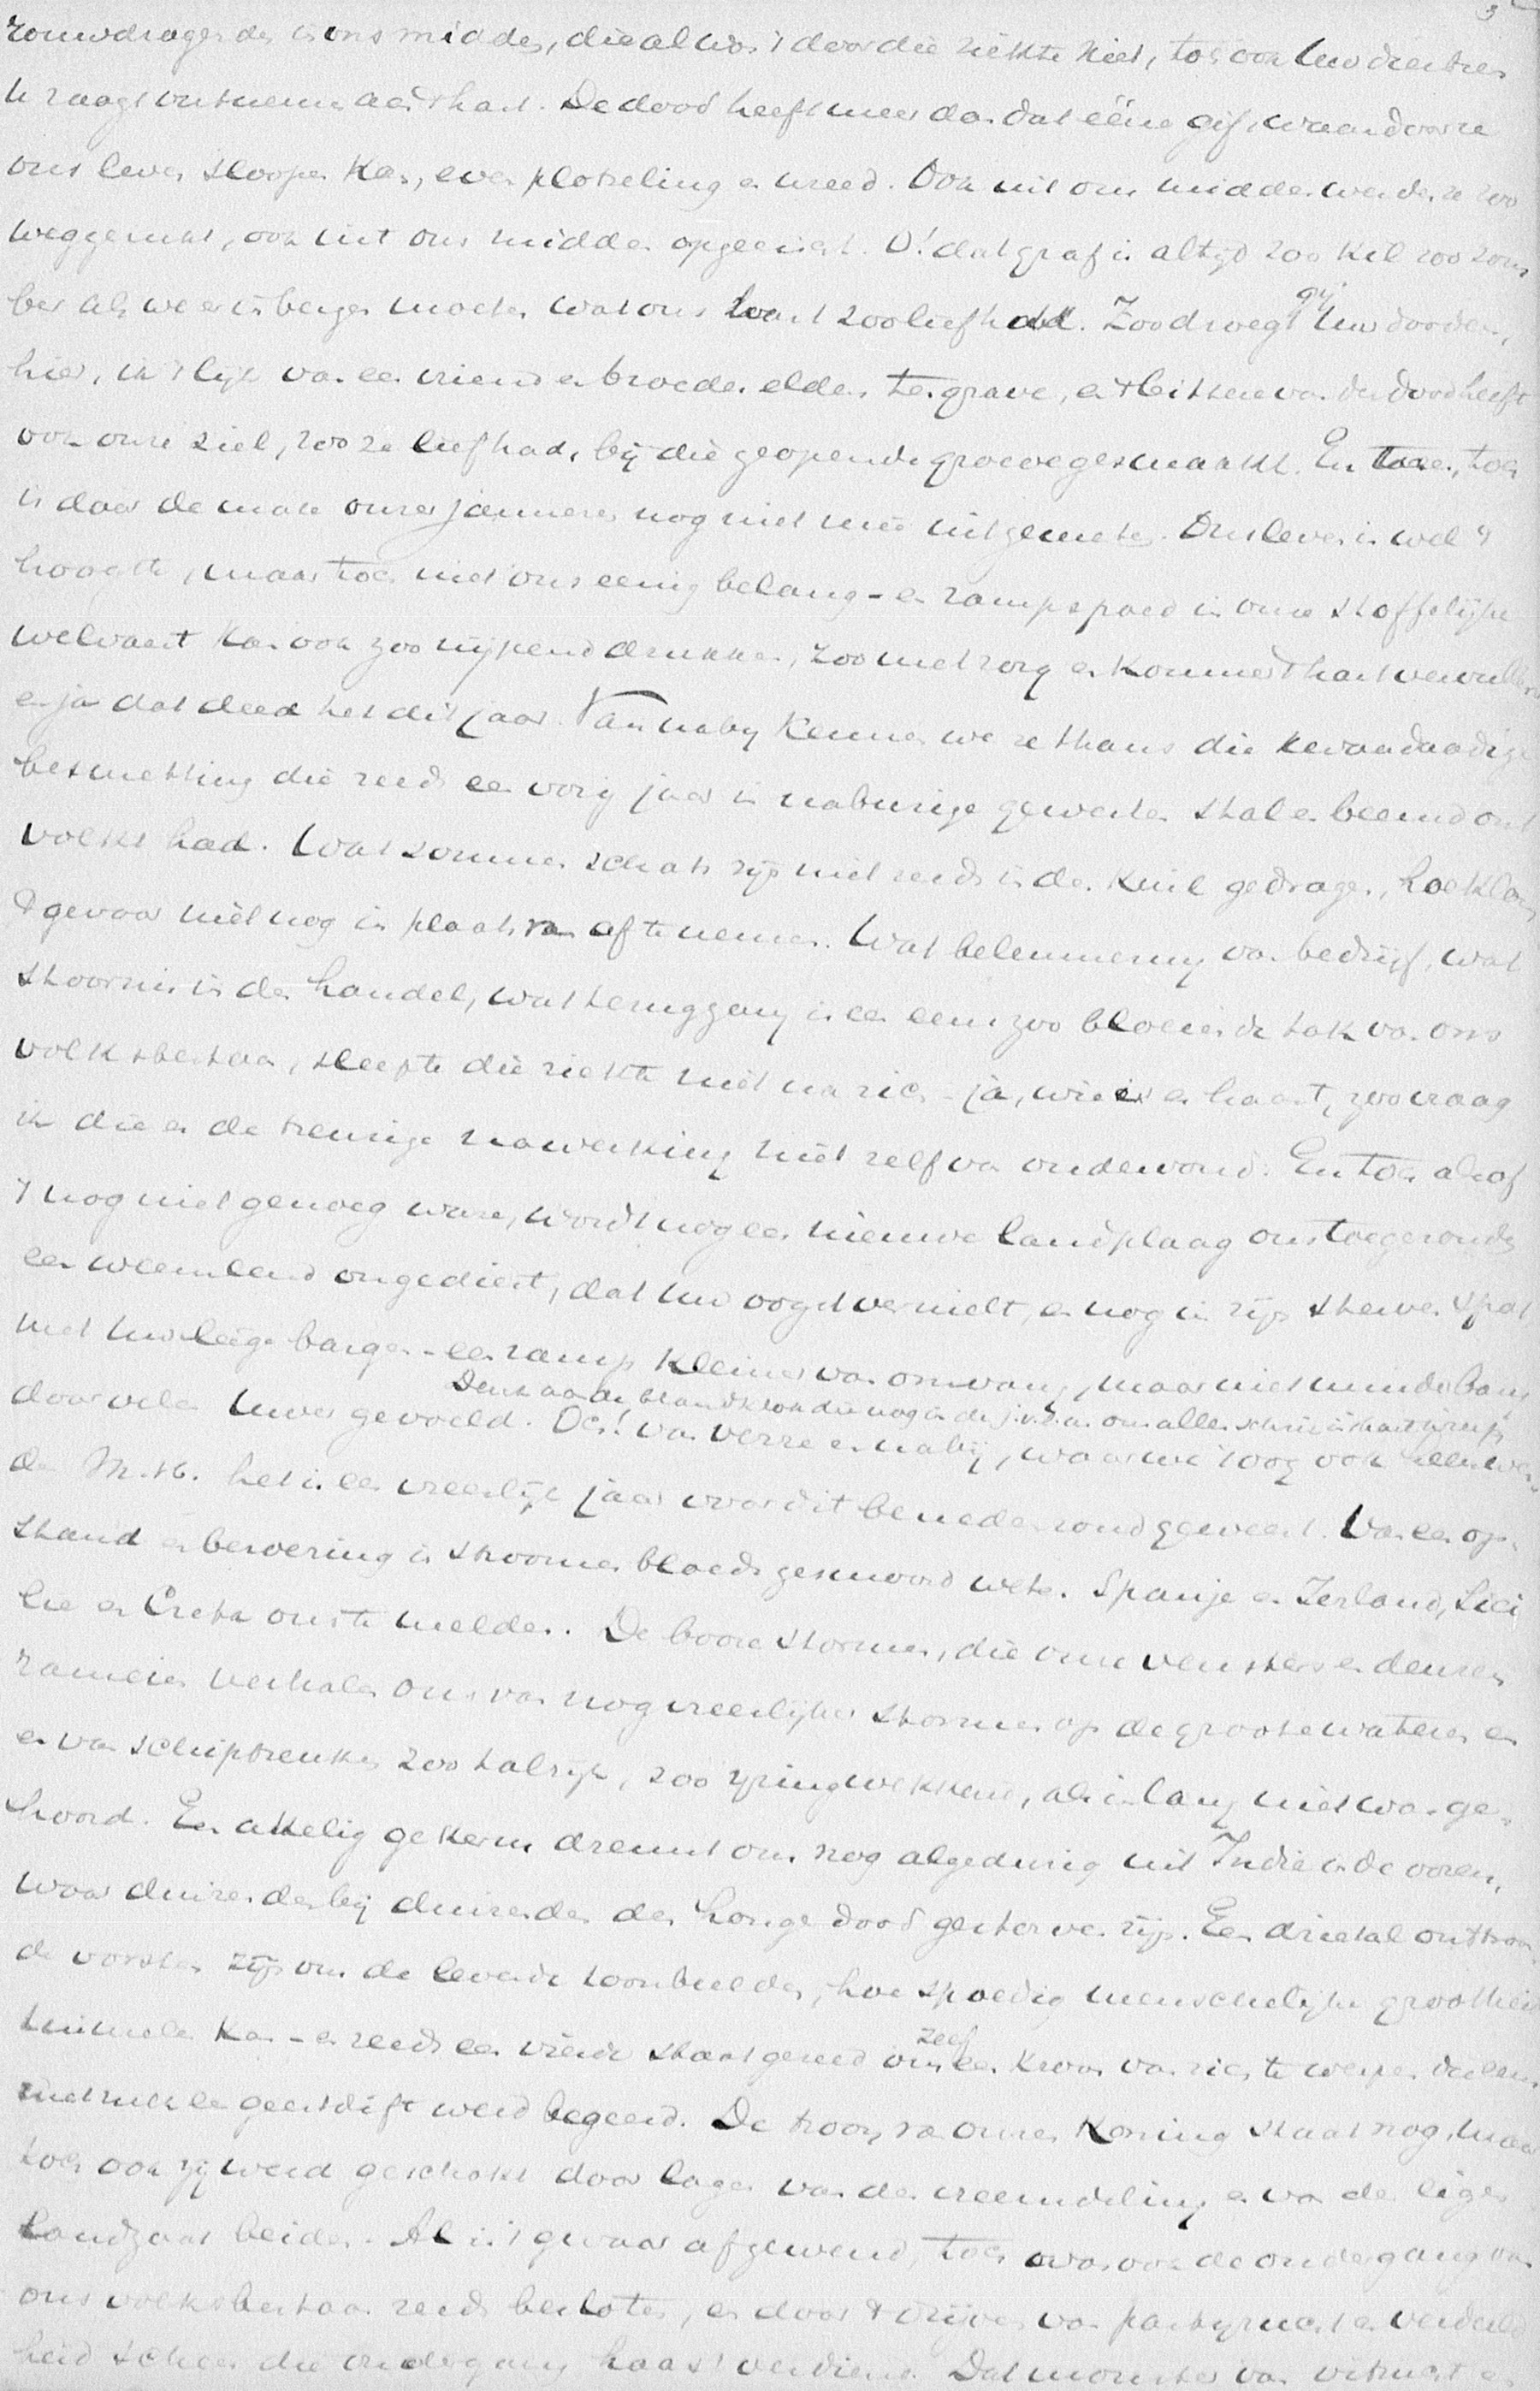 3
rouwdragenden in ons midden, die al was 't door die ziekte niet, toch ook uw dierbren
u zaagt ontnemen aan 't hart. De dood heeft meer dan dat ééne gif, waardoor ze
ons leven sloopen kan, even plotseling en wreed. Ook uit ons midden werden ze zoo
weggerukt, ook uit ons midden opgeeischt. O! dat graf is altijd zoo kil zoo som
ber als we er in bergen moeten wat ons hart zoo lief had. Zoo droegt gij uw dooden,
hier, ik 't lijk van een vriend en broeder elders ten grave, en 't bittere van den dood heeft
ook onze ziel, zoo ze lief had, bij die geopende groeve gesmaakt. En toch, toch
is daar de mate onzes jammers nog niet meê uitgemeten. Ons leven is wel 't
hoogste, maar toch niet ons eenig belang - en rampspoed in onze stoffelijke
welvaart kan ook zoo nijpend drukken, zoo met zorg en kommer 't hart vervullen
en ja dat deed het dit jaar. Van nabij kennen we ze thans die kwaadaardige
besmetting die reeds een vorig jaar in naburige gewesten stal en beemd ont
volkt had. Wat sommen schats zijn niet reeds in den kuil gedragen, hoe klom
't gevaar niet nog in plaats van af te nemen. Wat belemmering van bedrijf, wat
stoornis in den handel, wat teruggang in een eens zoo bloeiende tak van ons
volksbestaan, sleepte die ziekte niet na zich - ja, wie is er haast, zoo vraag
ik die er de treurige nawerking niet zelf van ondervond. En toch alsof
't nog niet genoeg ware, wordt nog een nieuwe landplaag ons toegezonden
een wemelend ongediert, dat uw oogst vernielt, en nog in zijn sterven spot
met uw leêge bargen - een ramp kleiner van omvang, maar niet minder bang
Denk aan de brand die nog in de j.v.l.n. ons allen schrik in 't hart joeg
door velen uwer gevoeld. Och! van verre en nabij, waar we 't oog ook heen wen
den M.H. het is een vreeslijk jaar voor dit beneden rond geweest. Van een op-
stand en beroering in stroomen bloeds gesmoord weten Spanje en Ierland, Sici
lie en Creta ons te melden. De booze stormen, die onze vensters en deuren
rameien verhalen ons van nog vreeslijker stormen op de groote wateren en
en van schipbreuken zoo talrijk, zoo ijzingwekkend, als in lang niet was ge-
hoord. Een akelig gekerm dreunt ons nog algedurig uit Indie in de ooren,
waar duizenden bij duizenden den honger dood gestorven zijn. Een drietal onttroon
de vorsten zijn ons de levende toonbeelden, hoe spoedig menschelijke grootheid
tuimelen kan - en reeds een vierde staat gereed om zelf een kroon van zich te werpen die eens
met zulk een geestdrift werd begeerd. De troon van onzen Koning staat nog, maar
toch ook zij werd geschokt door lagen van den vreemdeling en van den eigen
landzaat beiden. Al is 't gevaar afgewend, toch was ook de ondergang van
ons volksbestaan reeds besloten, en door 't drijven van partijzucht en verdeeld
heid scheen die ondergang haast verdiend. Dat monster van vitzucht en